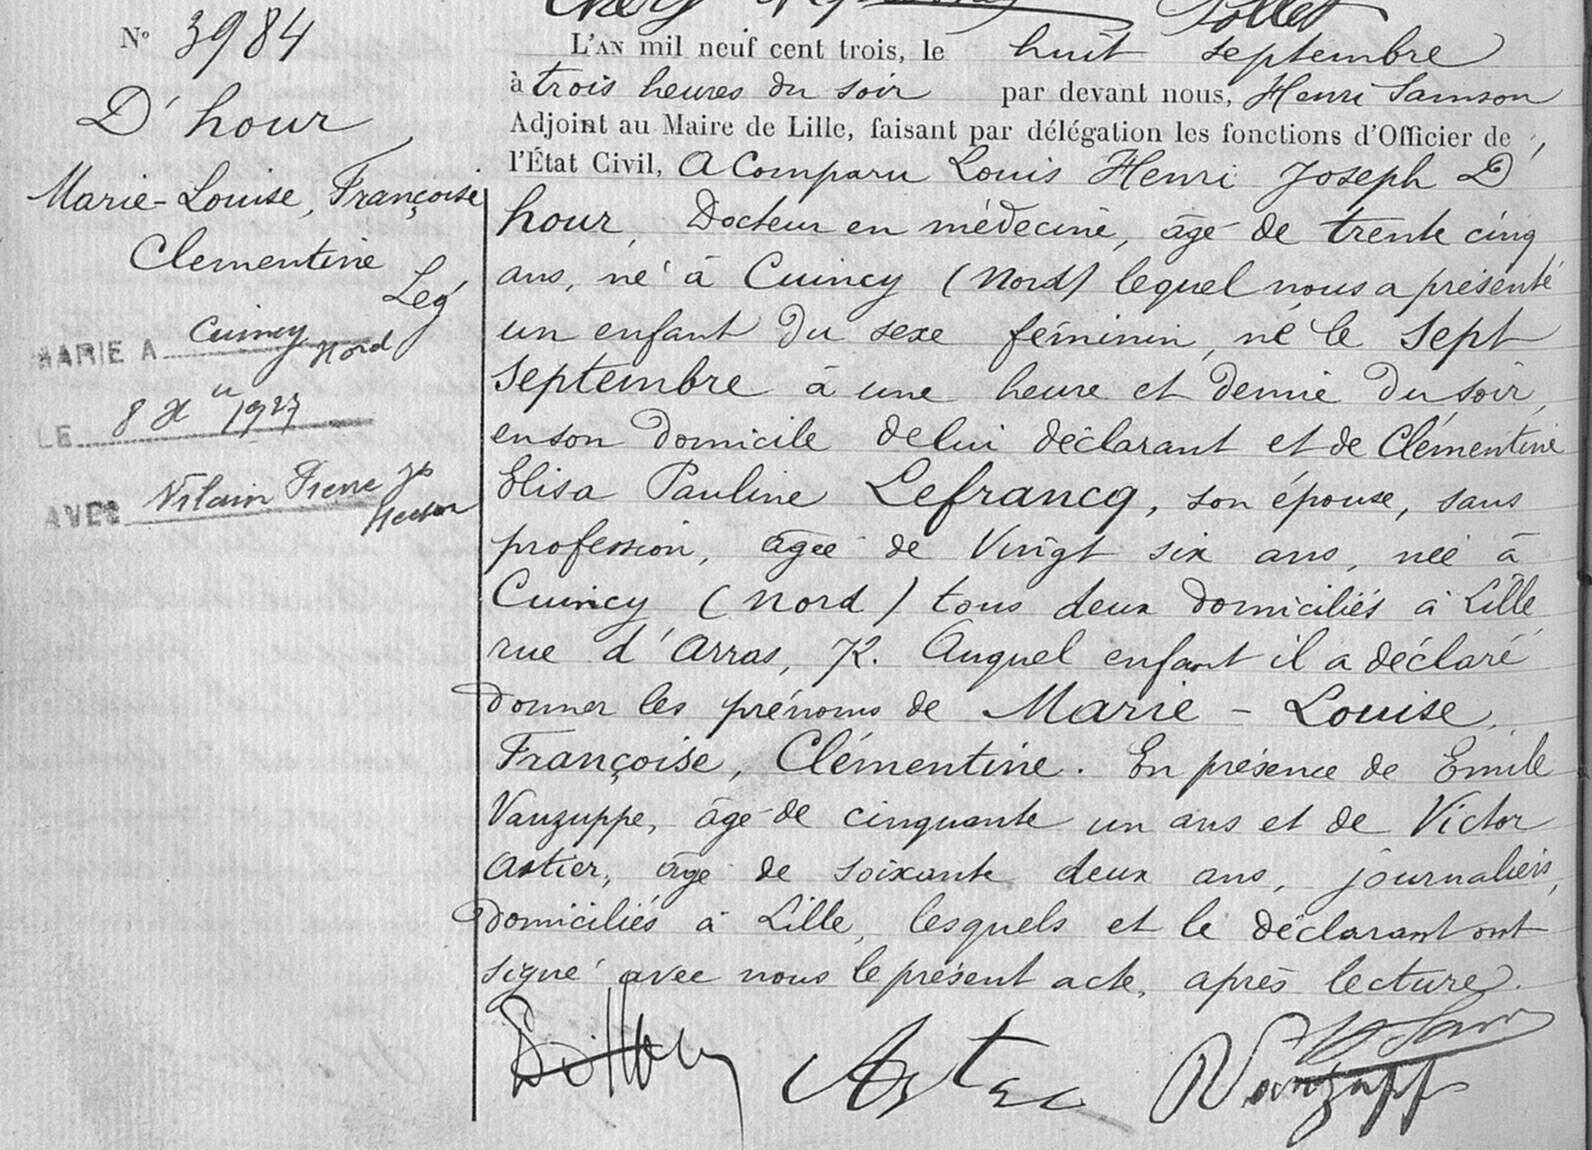 Pollet
N° 3984
D'hour
Marie-Louise, Françoise
Clementine
Leg
MARIE A Cuincy
Nord
LE 8 X 1927
AVEC Vilain Pierre Jh
Hector
L'AN mil neuf cent trois, le huit septembre
à trois heures du soir par devant nous, Henri Samson
Adjoint au Maire de Lille, faisant par délégation les fonctions d'Officier de
l'État Civil, A Comparu Louis Henri Joseph D'
hour, Docteur en médecine, âgé de trente cinq
ans, né à Cuincy (Nord) lequel nous a présenté
un enfant du sexe féminin, né le sept
septembre à une heure et demie du soir,
en son domicile de lui déclarant et de Clémentine
Elisa Pauline Lefrancq, son épouse, sans
profession, âgée de vingt six ans, née à
Cuincy (Nord) tous deux domiciliés à Lille
rue d'Arras, 72. Auquel enfant il a déclaré
donner les prénoms de Marie-Louise,
Françoise, Clémentine. En présence de Emile
Vanzuppe, âgé de cinquante un ans et de Victor
Astier, âgé de soixante deux ans, journaliers,
domiciliés à Lille, lesquels et le déclarant ont
signé avec nous le présent acte, après lecture.